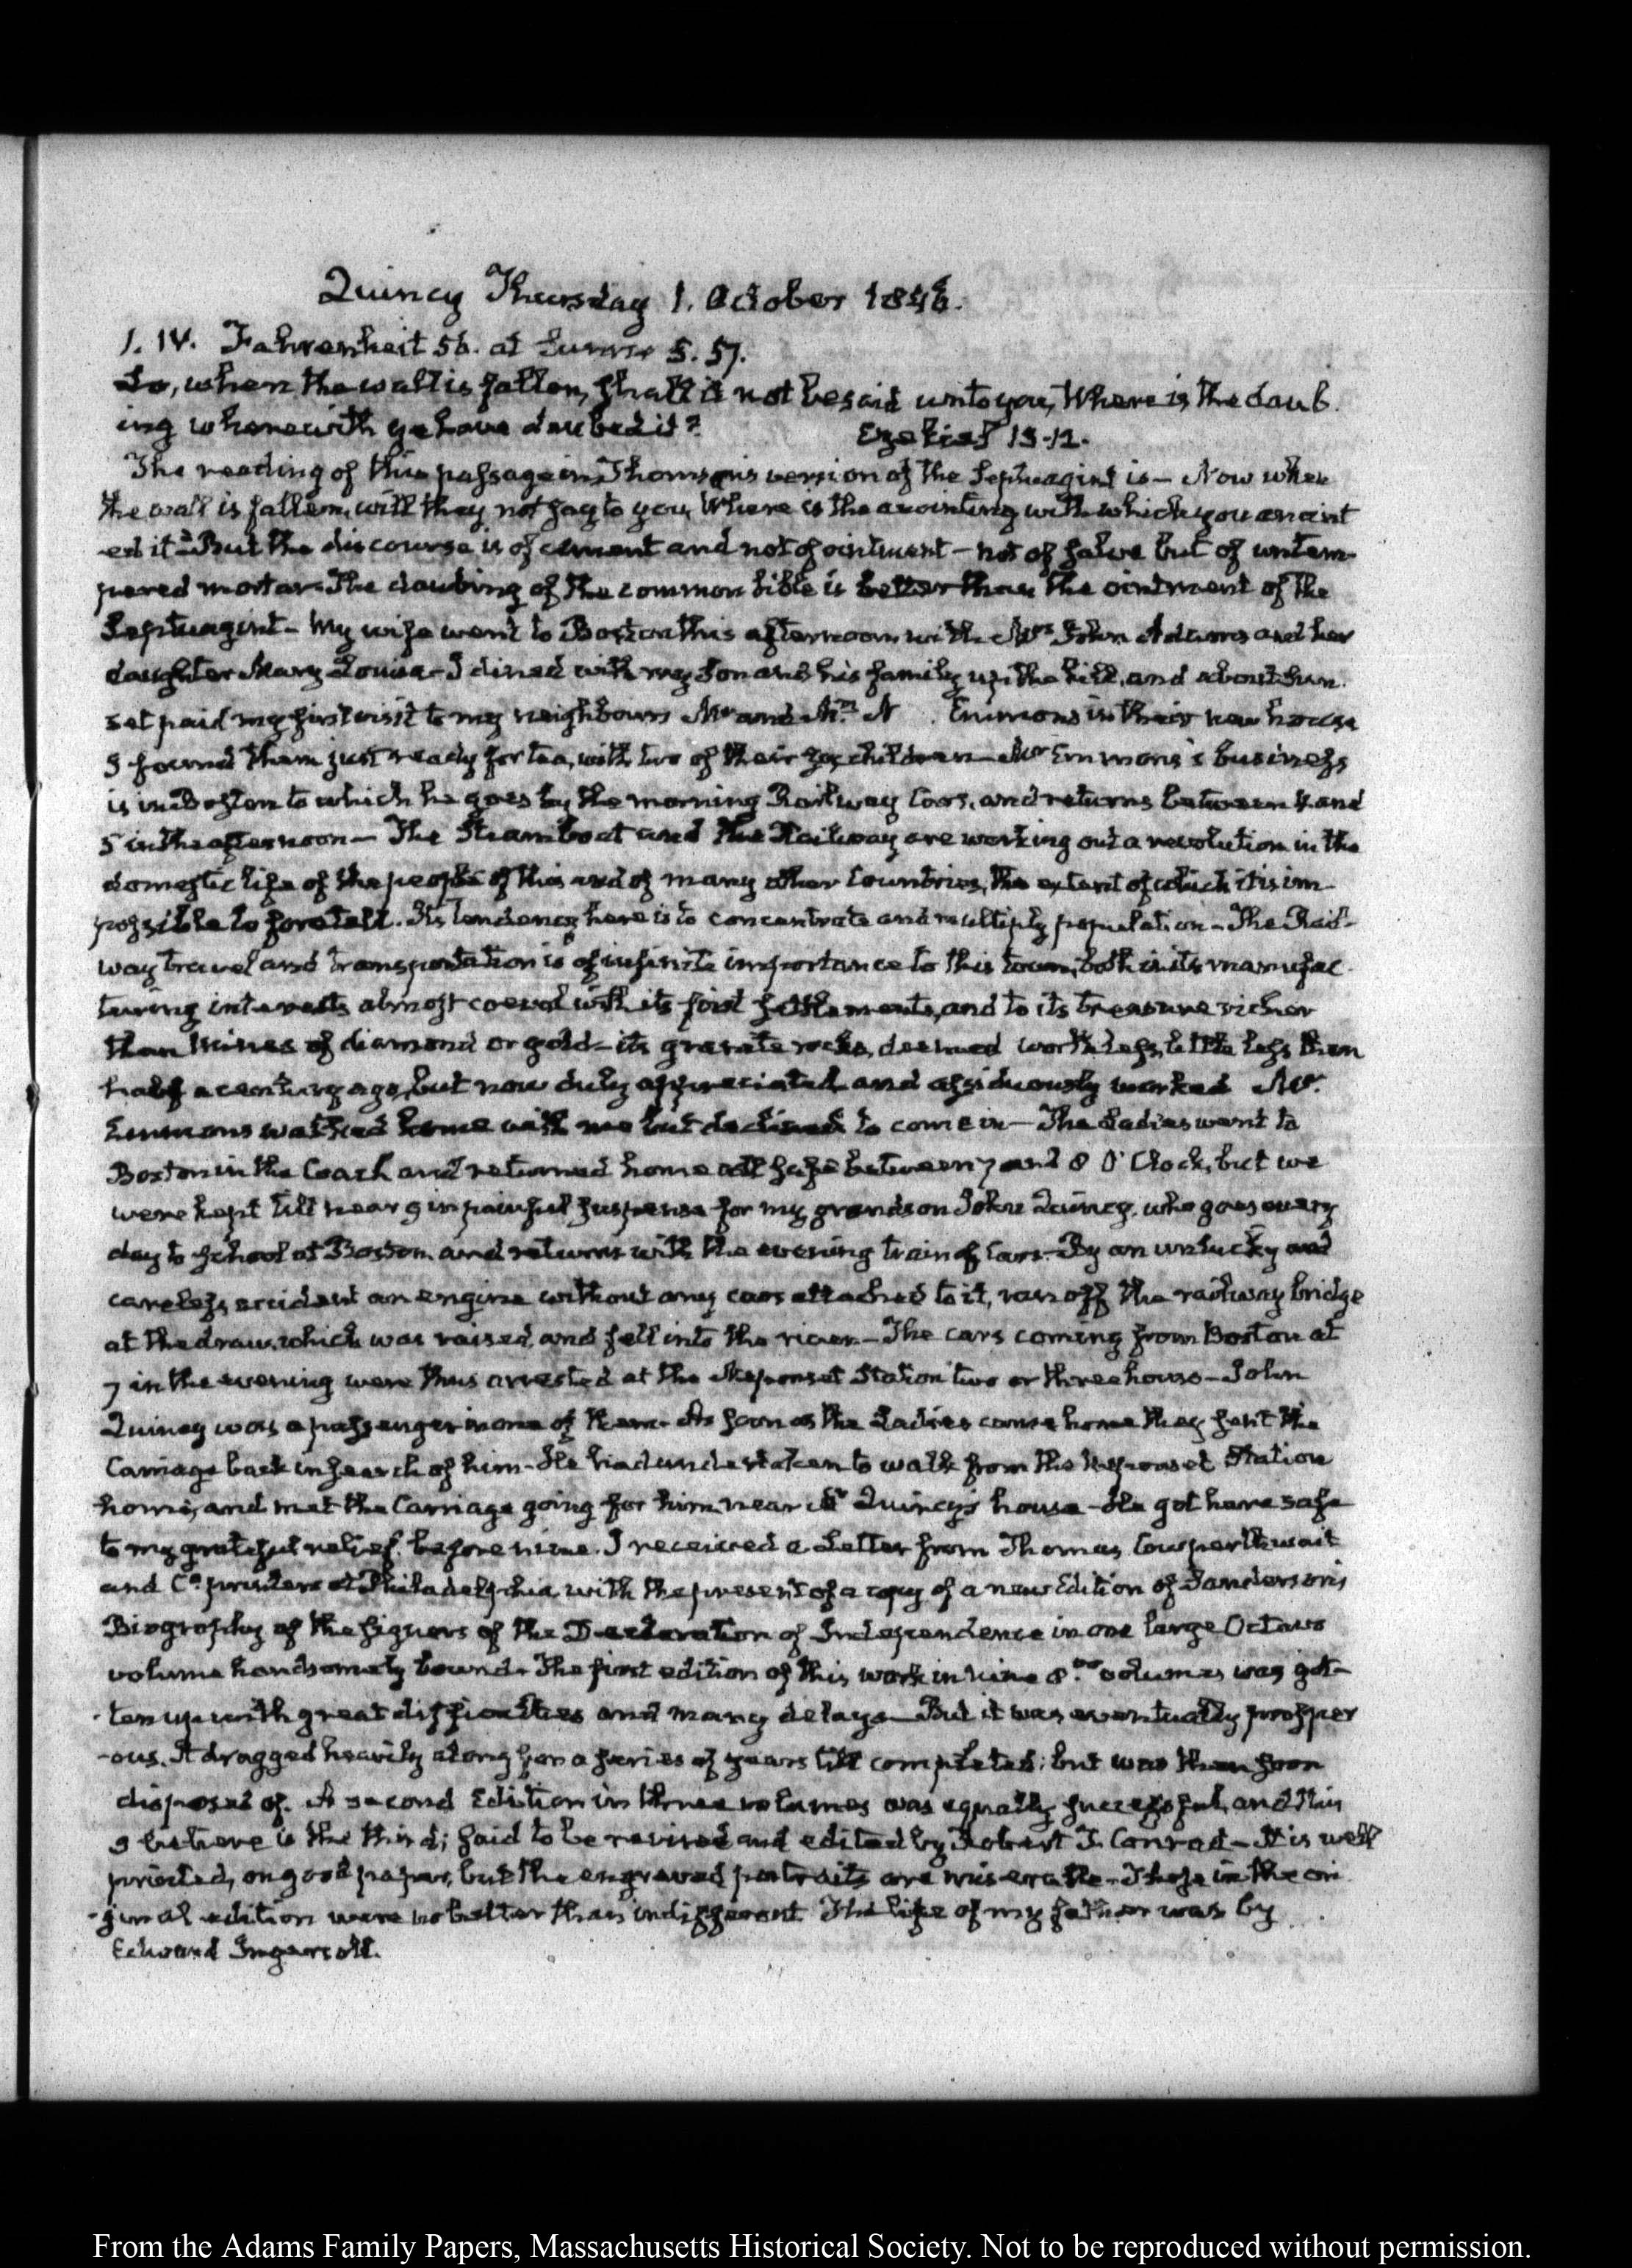 Quincy Thursday 1. October 1846.
1. IV. Fahrenheit 56. at Sunrise 5. 57.
Lo, when the wall is fallen, shall it not be said unto you, Where is the daub.
ing wherewith ye have daubed it? Ezekiel 13-12.
The reading of this passage in Thomson's version of the Septuagint is — Now when
the wall is fallen, will they not say to you, Where is the anointing with which you anoint
-ed it — But the discourse is of cement and not of ointment — not of salve but of untem-
pered mortar. The daubing of the common bible is better than the ointment of the
Septuagint — My wife went to Boston this afternoon with Mrs. John Adams and her
daughter Mary Louisa — I dined with my Son and his family up the hill, and about Sun.
set paid my first visit to my neighbours Mr and Mrs. N . Emmons in their new house
I found them just ready for tea, with two of their children — Mr Emmons's business
is in Boston to which he goes by the morning Railway Cars, and returns between 4 and
5 in the afternoon — The Steamboat and the Railway are working out a revolution in the
domestic life of the people of this and of many other Countries, the extent of which it is im-
possible to foretell. Its tendency here is to concentrate and multiply population — The Rail-
way travel and transportation is of infinite importance to this town, both in its manufac-
turing interests almost coeval with its first settlements, and to its treasure richer
than Mines of diamond or gold — its granite rocks, deemed worthless, little less than
half a century ago, but now duly appreciated and assiduously worked Mr.
Emmons walked home with me but declined to come in — The Ladies went to
Boston in the Coach and returned home all safe between 7 and 8 O' Clock, but we
were kept till near 9 in painful suspense for my grandson John Quincy, who goes every
day to School at Boston, and returns with the evening train of Cars. By an unlucky and
careless accident an engine without any cars attached to it, ran off the railway bridge
at the draw, which was raised, and fell into the river — The cars coming from Boston at
7 in the evening were thus arrested at the Neponset Station two or three hours — John
Quincy was a passenger in one of them. As soon as the Ladies came home they sent the
Carriage back in search of him — He had undertaken to walk from the Neponset Station
home, and met the Carriage going for him, near Mr Quincy's house — He got here safe
to my grateful relief, before nine. I received a Letter from Thomas Cowperthwait
and Co. printers at Philadelphia with the present of a copy of a new Edition of Sanderson's
Biography of the Signers of the Declaration of Independence in one large Octavo
volume handsomely bound. The first edition of this work in nine 8.vo volumes was got-
ten up with great difficulties and many delays — But it was eventually prosper
-ous. It dragged heavily along for a series of years till completed; but was then soon
disposed of. A second Edition in three volumes was equally successful, and this
I believe is the third; said to be revised and edited by Robert T. Conrad — It is well
printed, on good paper, but the engraved portraits are miserable. Those in the ori
-ginal edition were no better than indifferent. The life of my father was by
Edward Ingersoll.
From the Adams Family Papers, Massachusetts Historical Society. Not to be reproduced without permission.